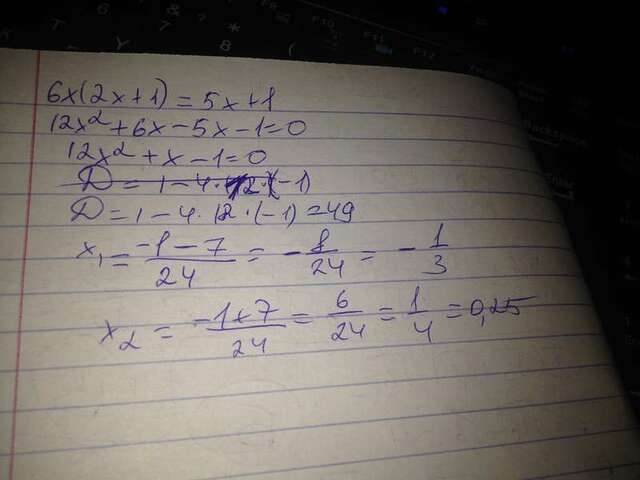 6x(2x+1)=5x+1
12x²+6x-5x-1=0
12x²+x-1=0
D=1-4·12·(-1)
D=1-4·12·(-1)=49
x₁=\frac{-1-7}{24}=-\frac{8}{24}=-\frac{1}{3}
x₂=\frac{-1+7}{24}=\frac{6}{24}=\frac{1}{4}=0,25